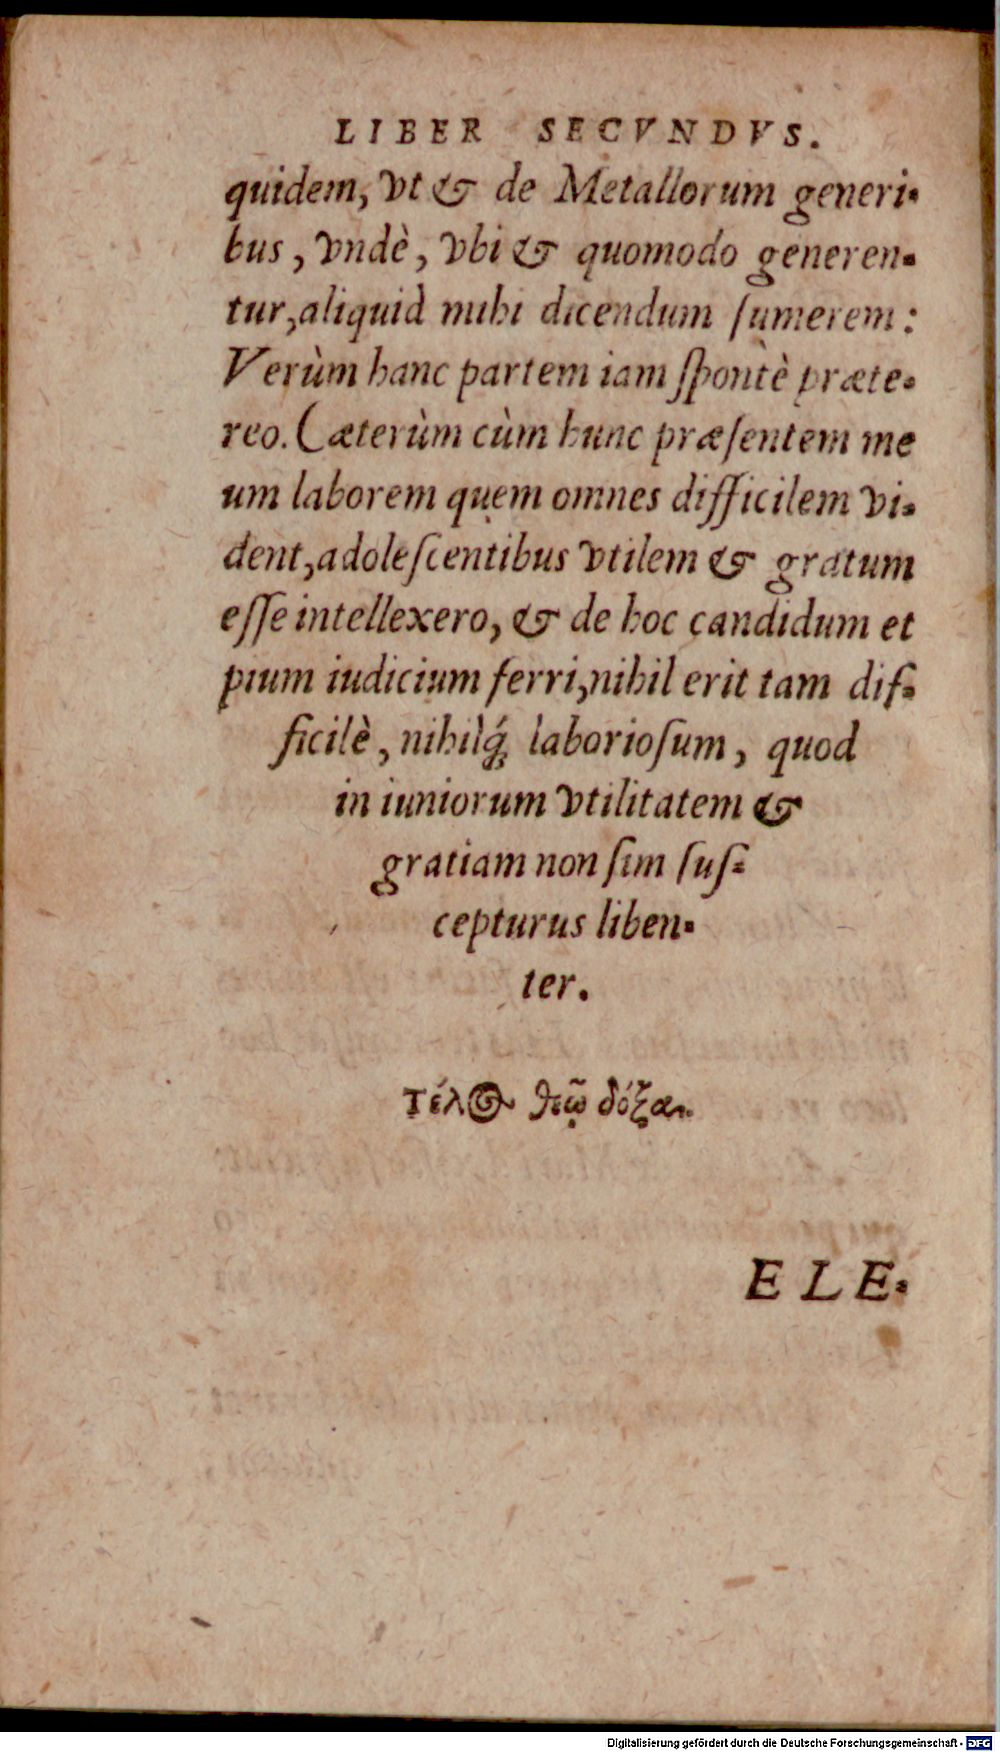 LIBER SECVNDVS.
quidem, vt & de Metallorum generi-
bus, vndè, vbi & quomodo generen-
tur, aliquid mihi dicendum ſumerem:
Verùm hanc partem iam ſpontè præte-
reo. Cæterùm cùm hunc præſentem me
um laborem quem omnes difficilem vi-
dent, adoleſcentibus vtilem & gratum
eſſe intellexero, & de hoc candidum et
pium iudicium ferri, nihil erit tam dif-
ficilè, nihilq́; laborioſum, quod
in iuniorum vtilitatem &
gratiam non ſim ſuſ-
cepturus liben-
ter.
τέλος θεῷ δόξα.
ELE-
Digitalisierung gefördert durch die Deutsche Forschungsgemeinschaft - DFG